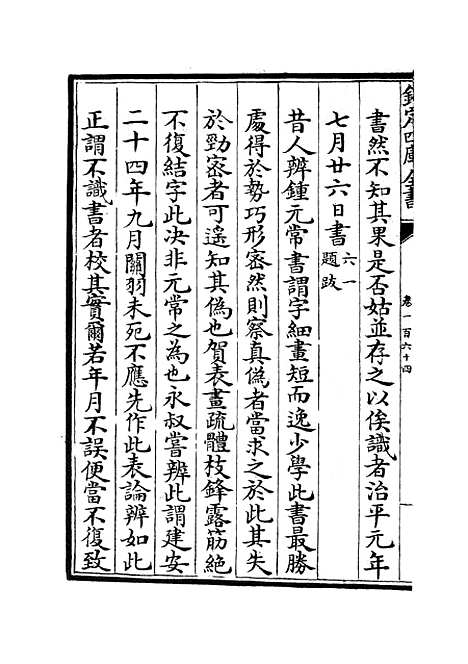 欽定四庫全書
卷一百六十四
書然不知其果是否姑並存之以俟識者治平元年
七月廿六日書六一題跋
昔人辨鍾元常書謂字細畫短而逸少學此書最勝
處得於勢巧形密然則察真偽者當求之於此其失
於勁密者可遙知其偽也賀表畫疏體枝鋒露筋絕
不復結字此決非元常之為也永叔嘗辨此謂建安
二十四年九月關羽未死不應先作此表論辨如此
正謂不識書者校其實爾若年月不誤便當不復致